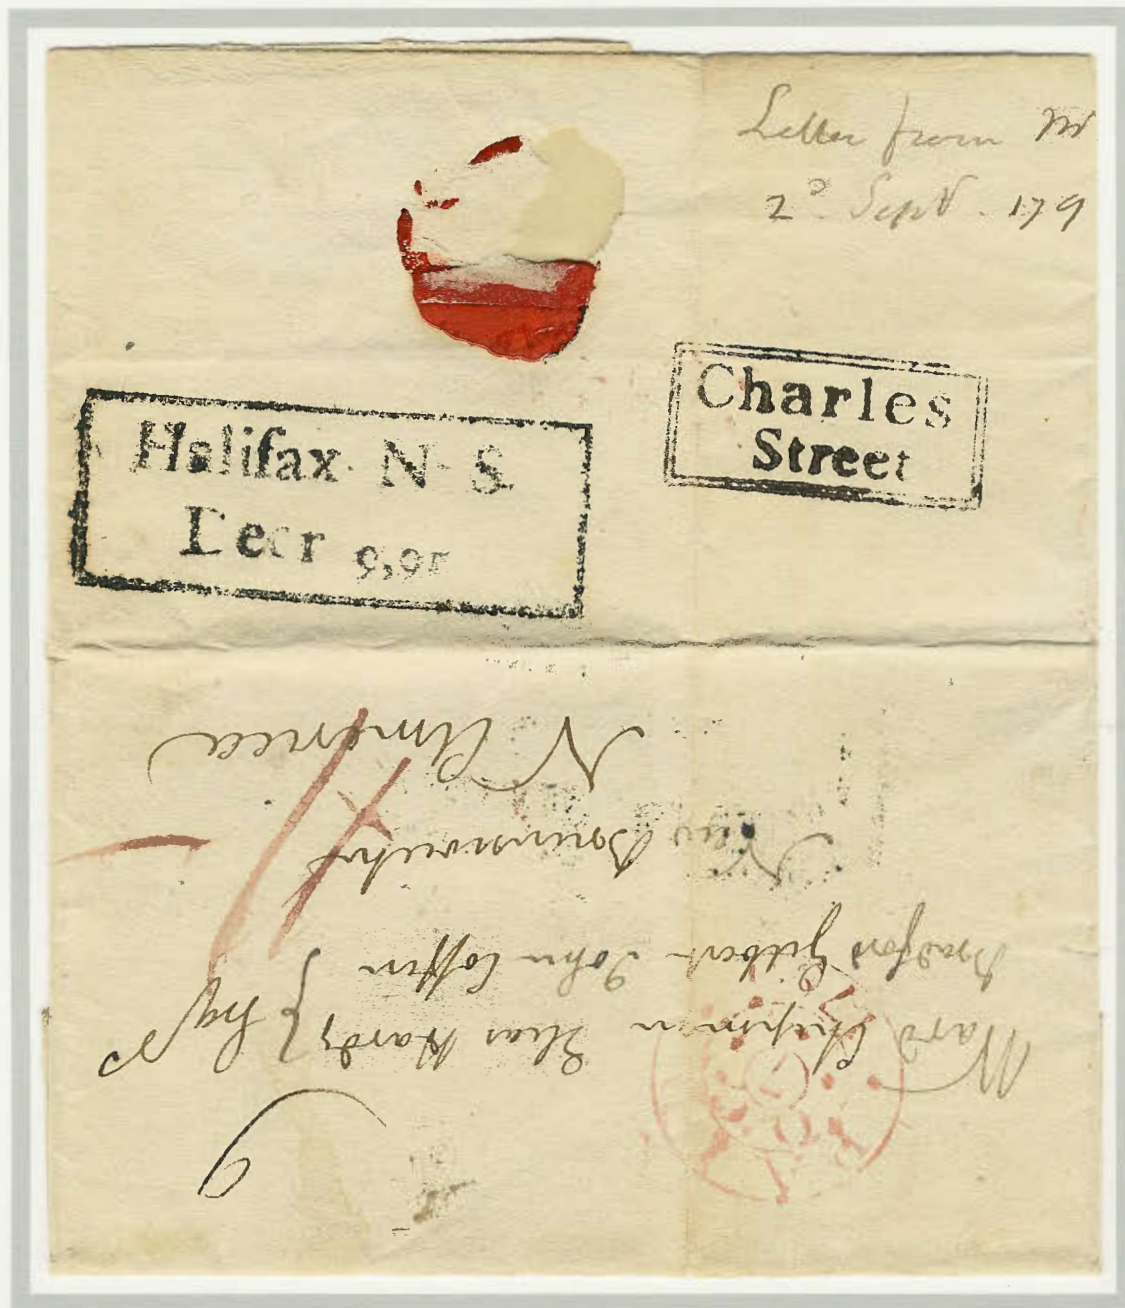 Letter from Mr
2d Sept. 179
Charles
Street
Halifax N S.
Decr 9,95
Ward Chipman Elias Hardy } Esqrs
Bradford Gilbert John Coffin
New Brunswick
N America